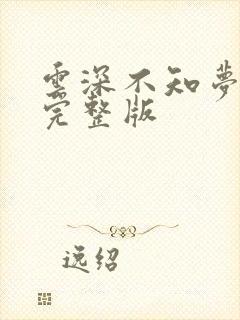 雲深不知夢
完整版
逸绍